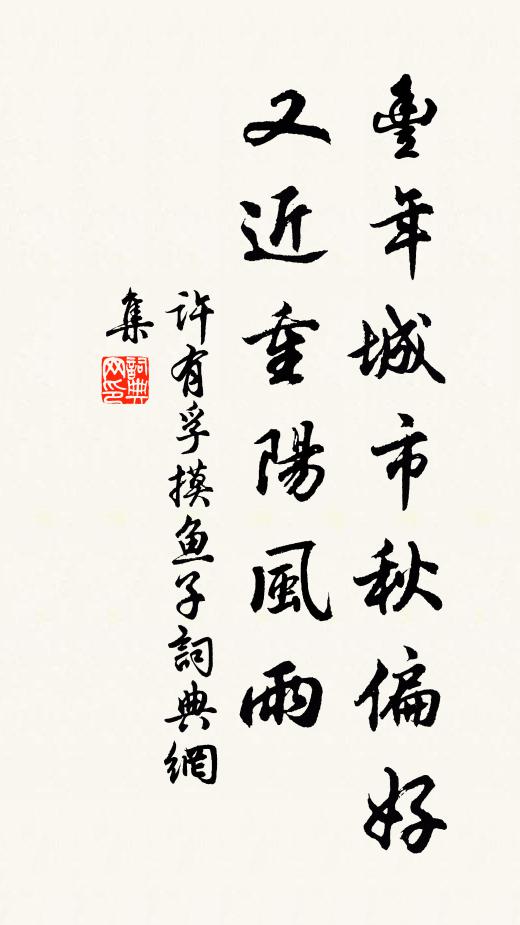 豐年城市秋偏好
又近重陽風雨
許有孚摸鱼子詞典網
集
詞典
网印